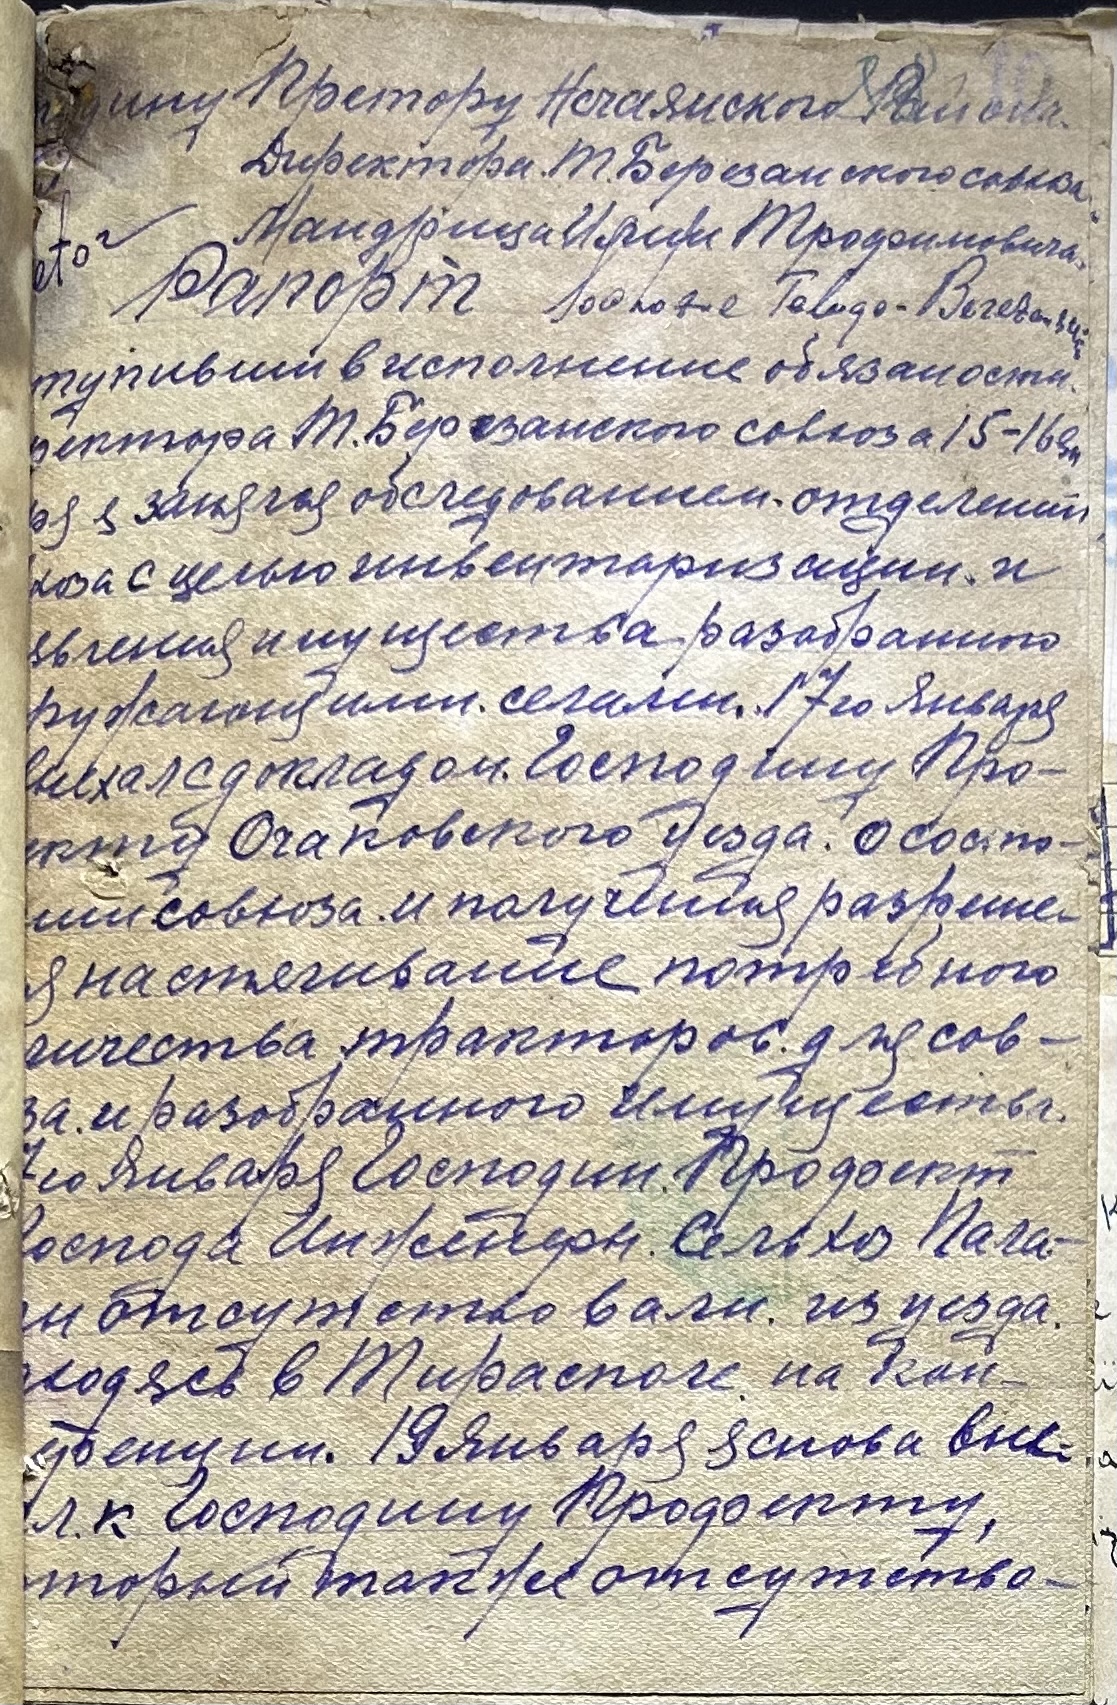 Претору Нечаянского Района.
Директора. Т. Березанского совхоза.
Мандрица Трофимовича.
Рапорт
тупивши в исполнение обязаности.
ректора Т. Березанского совхоза 15-16
ря я занялся обследованием. отделений
хоза с целью инвентаризации. и
явления имущества разобранного
ружающими. селами. 17го Января
выехал с докладом. Господину Про-
екту Очаковского Уезда. о состо-
нии совхоза. и получения разреше-
я на стягивание потребного
личества тракторов. для сов-
за. и разобранного имущества.
7го Января Господин. Профект
Господа Инженеры. Сельхоз Пала-
ы отсутство вали. из уезда.
ходясь в Тирасполе. на Кон-
ференции. 19 Января я снова вые-
л. к Господину Профекту,
торый также отсутство-